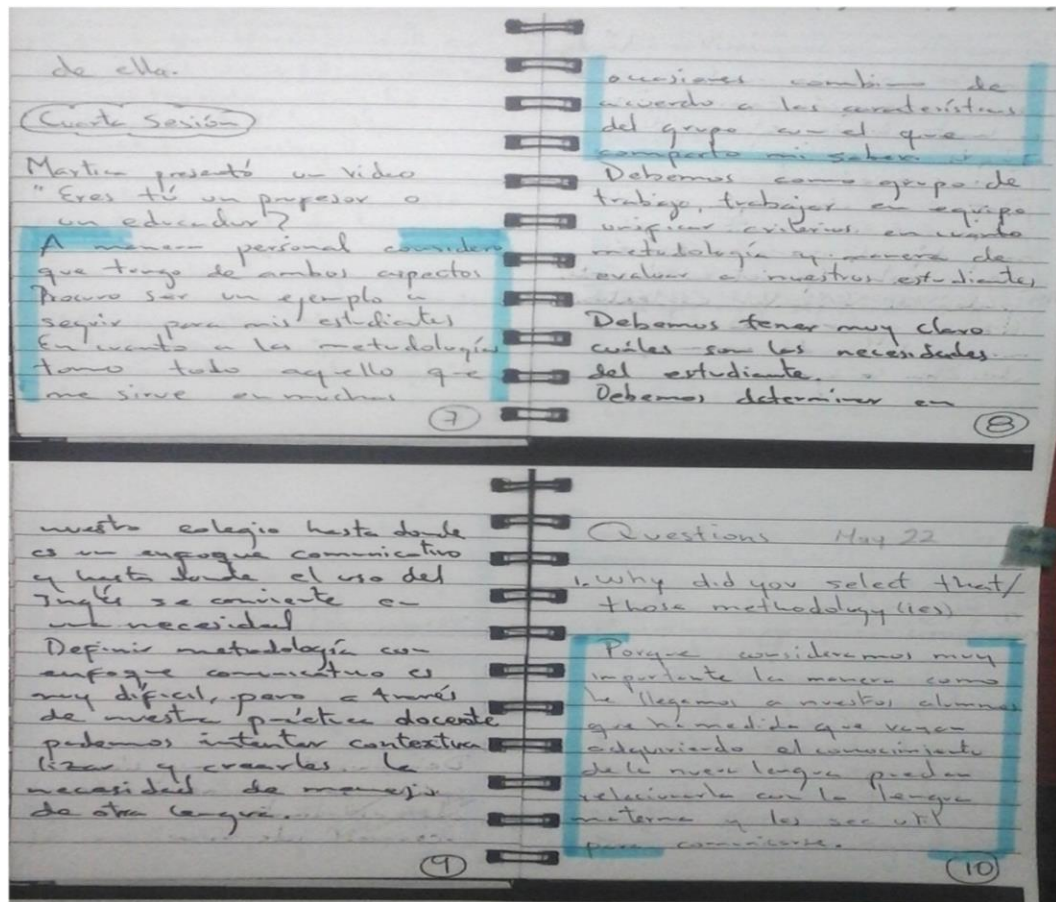 de ella.
Cuarta Sesión
Martin presentó un video
"Eres tú un profesor o
un educador?
A manera personal considero
que tengo de ambos aspectos
Procuro ser un ejemplo a
seguir para mis estudiantes
En cuanto a las metodologías
tomo todo aquello que
me sirve en muchas
7
ocasiones cambian de
acuerdo a las caraterísticas
del grupo con el que
comparto mi saber.
Debemos como grupo de
trabajo, trabajar en equipo
unificar criterios en cuanto
metodología y manera de
evaluar a nuestros estudiantes
Debemos tener muy claro
cuáles son las necesidades
del estudiante.
Debemos determinar en
8
nuestro colegio hasta donde
es un enfoque comunicativo
y hasta donde el uso del
Inglés se convierte en
una necesidad
Definir metodología con
enfoque comunicativo es
muy difícil, pero a través
de nuestra práctica docente
podemos intentar contextua
lizar y crearles la
necesidad de manejo
de otra lengua.
9
Questions May 22
1. Why did you select that/
those methodology(ies)
Porque consideramos muy
importante la manera como
le llegamos a nuestros alumnos
queha medida que vayan
adquiriendo el conocimiento
de la nueva lengua puedan
relacionarla con la lengua
materna y les sea util
para comunicarse.
10